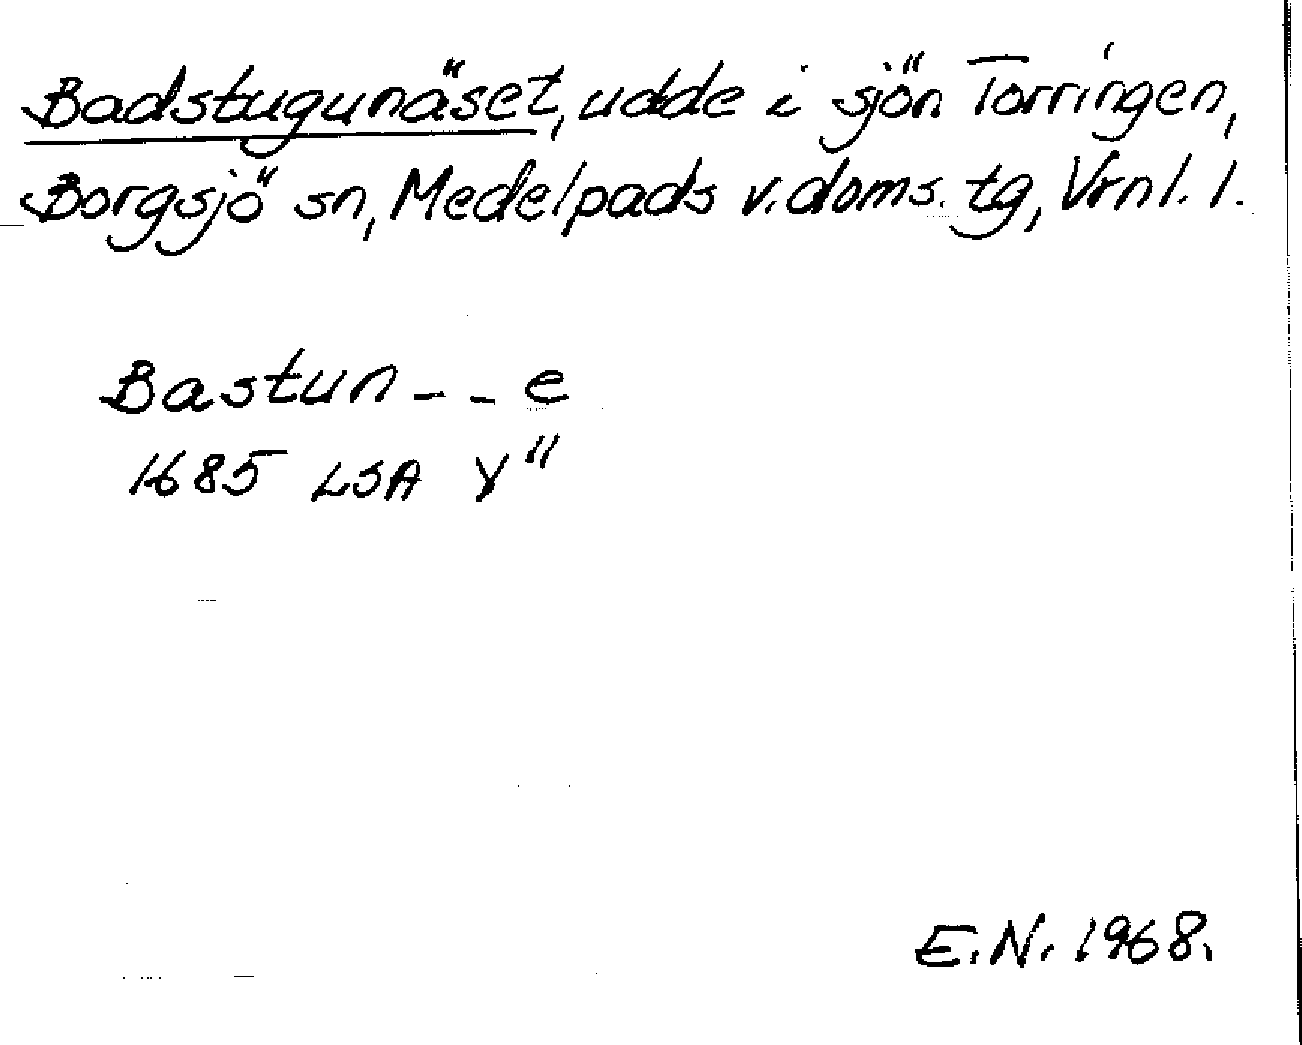 Badstugunäset, udde i sjön Torringen,
Borgsjö sn, Medelpads v. doms. tg, Vrnl. l.
Bastun - - e
1685 LSA Y 11
E.N. 1968.